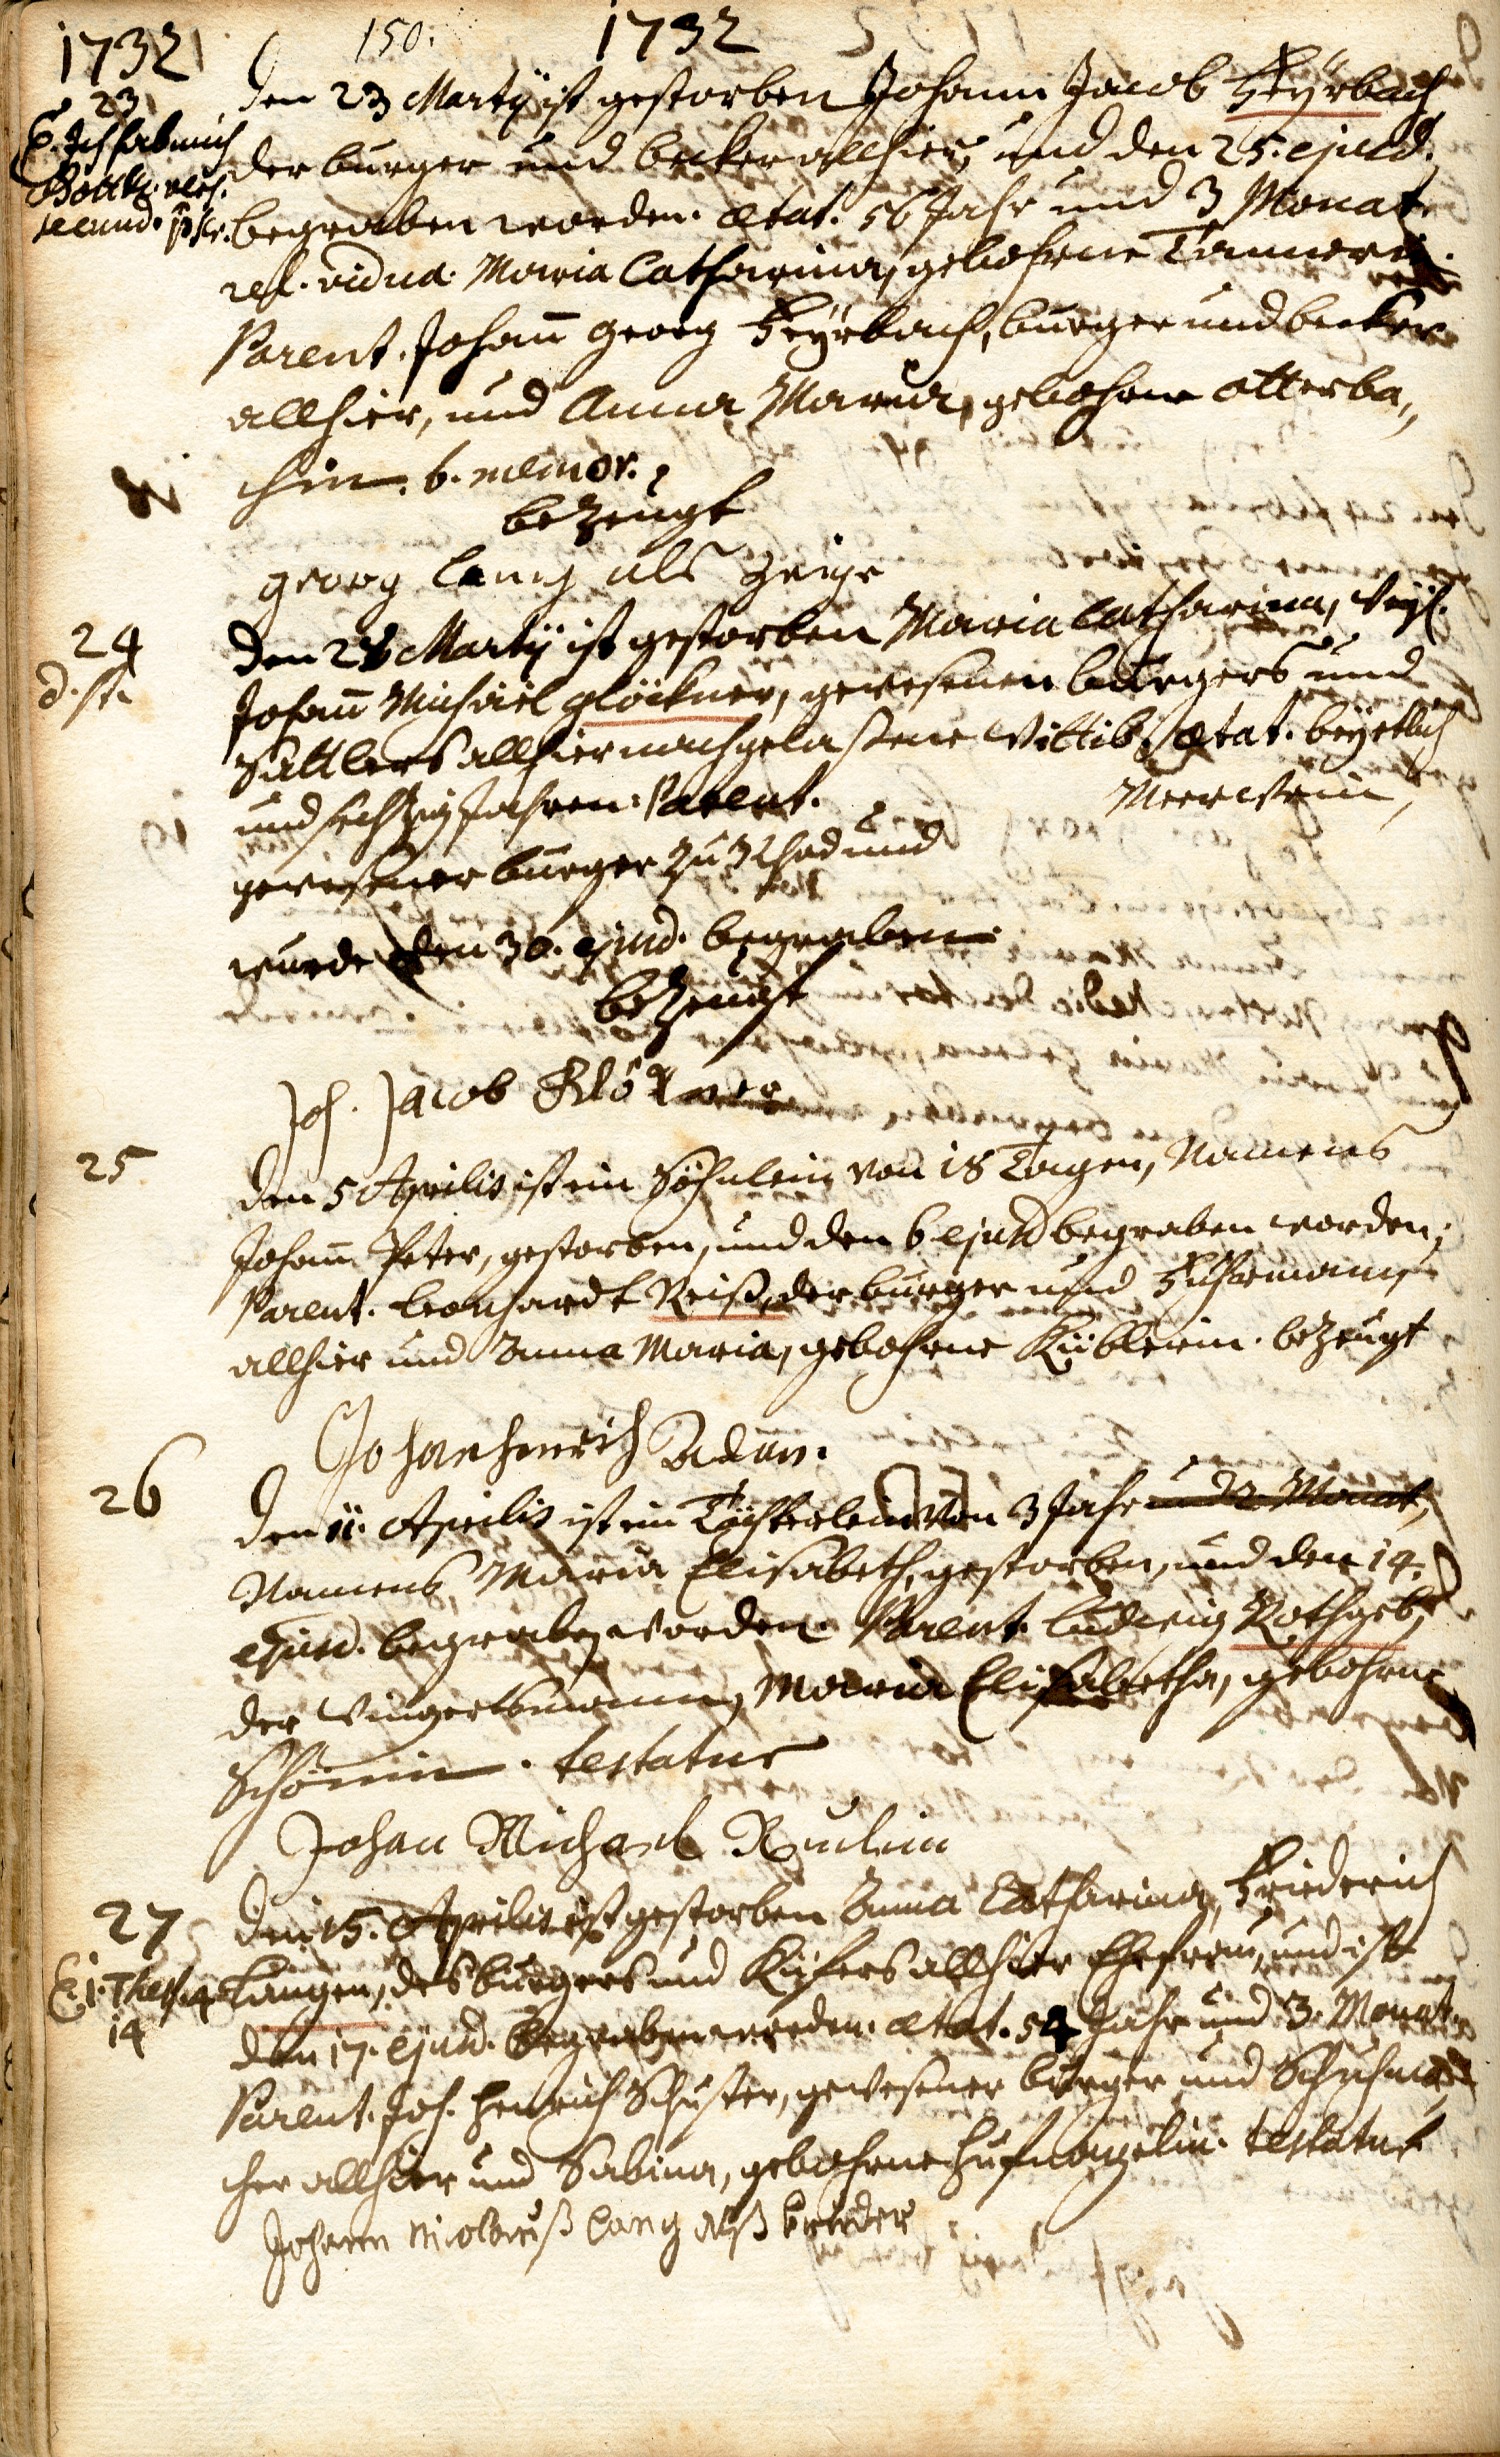 1732 150. 1732
23
E. Ich hab mich
Gott
secund.
den 23 Martÿ ist gestorben Johann Jacob Feÿrbach
der burger und becker allhier, und den 25. ejusd.
begraben worden. ætat. 56 Jahr und 3 Monat.
rel. vidua. Maria Catharina, gebohrne Tannerin.
Parent. Johann Georg Feÿrbach, burger und becker
allhier, und Anna Maria, gebohrne Otterba„
chin. b. memor.
bezeugt
georg lang als zeige
24
d. st.
den 28 Martÿ ist gestorben Maria Catharina, weÿl.
Johann Michäel glöckner, gewesenen burgers und
Sattlers allhier nachgelaßene Wittib. ætat. beÿ etlich
und sechzig Jahren. Parent. Meerwein,
gewesener burger zu und
wurde den 30. ejusd. begraben.
bezeugt
Joh. Jacob Glöckner
25
den 5 Aprilis ist ein Söhnlein von 18 Tagen, Namens
Johann Peter, gestorben, und den 6 ejusd begraben worden;
Parent. Leonhardt Reiß, der burger und Fuhrmann
allhier und Anna Maria, gebohrne Küblerin. bezeugt
Johan henrich Adam.
26
den 11. Aprilis ist ein Töchterlein von 3 Jahr und 2 Monat,
Namens Maria Elisabeth, gestorben, und den 14.
ejusd. begraben worden. Parent. Ludwig Rothgeb,
der Wingertsmann, Maria Elisabetha, gebohrne
Schönin. testatur
Johan Michael
27
E. 1. Thess. 4
14
den 15. Aprilis ist gestorben Anna Catharina, Friederich
Langen, des burgers und Küfers allhier Ehefrau, und ist
den 17. ejusd. begraben worden. ætat. 54 Jahr und 3. Monat.
Parent. Joh. Henrich Schuster, gewesener burger und Schuhma„
cher allhier und Sabina, gebohrne Hufnagelin. testatur
Johann nicolauß lang alß bruder